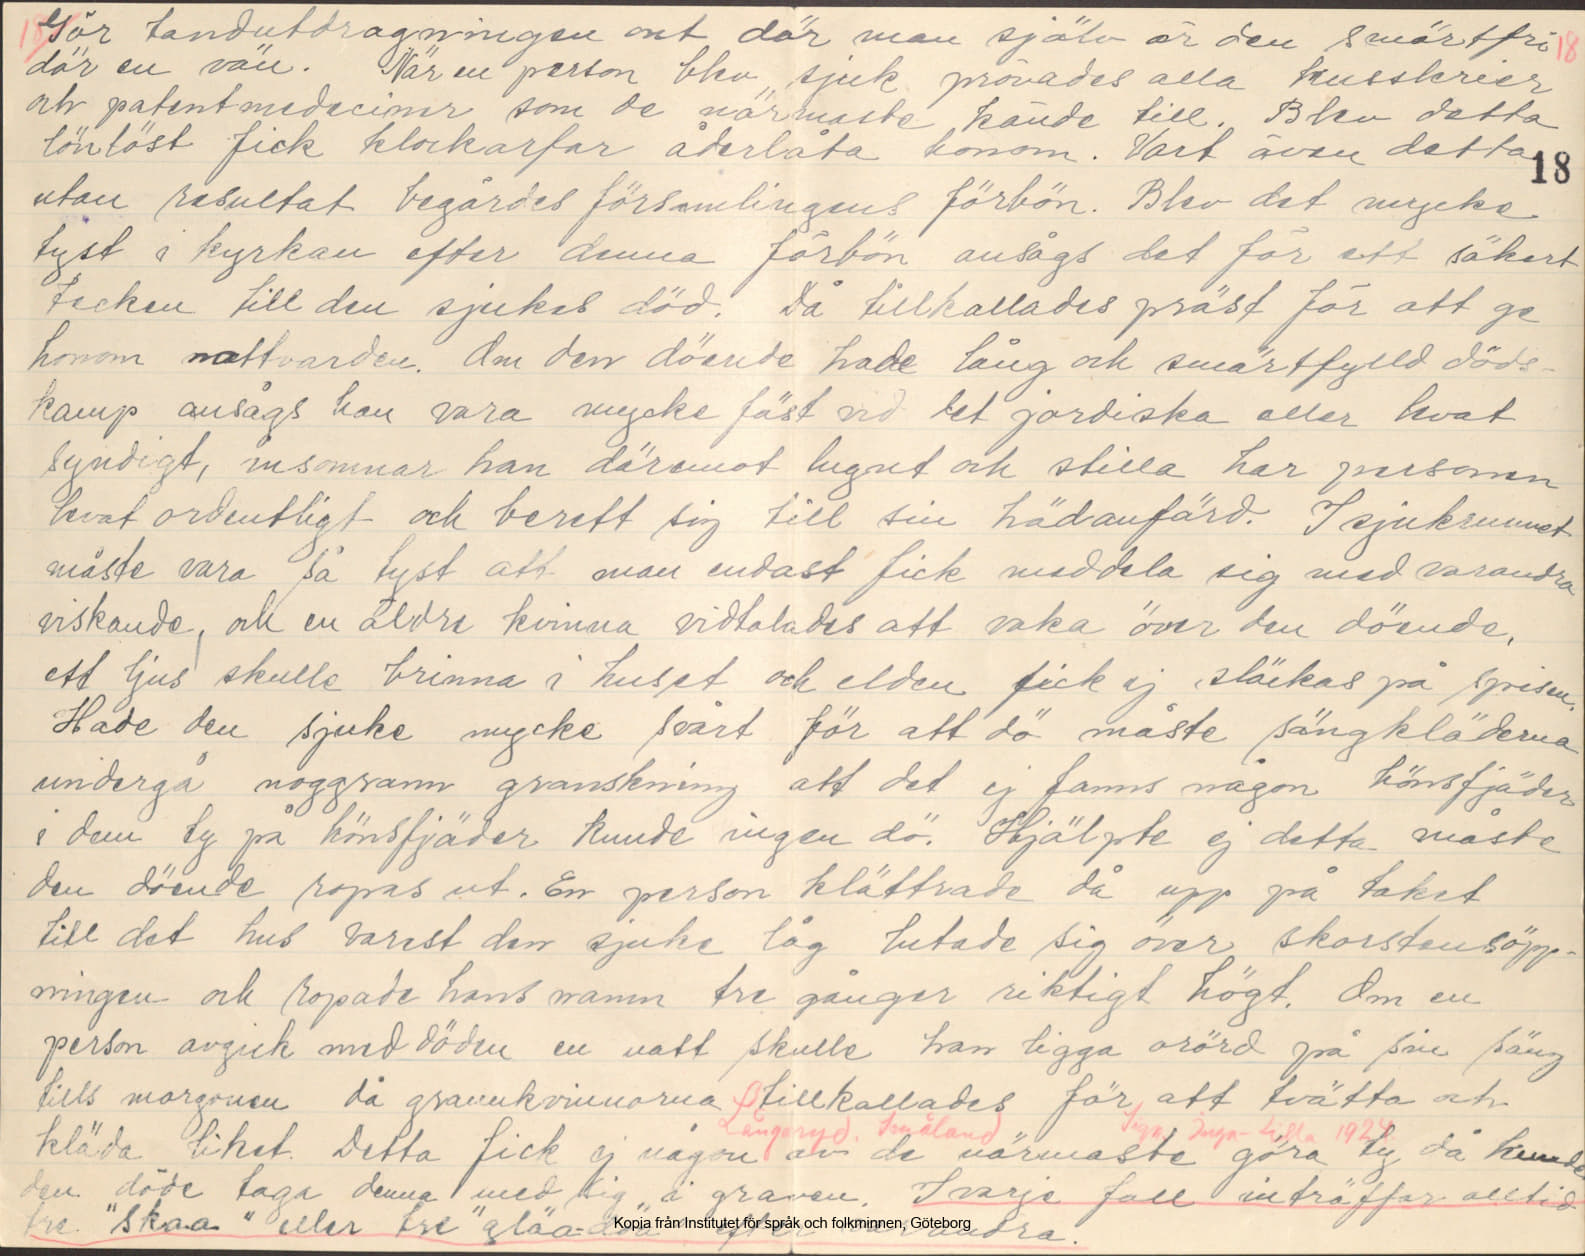 18 Gör tandutdragningen ont där man själv är den smärtfri 18
dör en vän. När en person blev sjuk prövades alla huskurier
och patentmedeciner som de närmaste kände till. Blev detta
lönlöst fick klockarfar åderlåta honom. Vart även detta
18
utan resultat begärdes församlingens förbön. Blev det mycke
tyst i kyrkan efter denna förbön ansågs det för ett säkert
tecken till den sjukes död. Då tillkallades präst för att ge
honom nattvarden. Om den döende hade lång och smärtfylld döds-
kamp ansågs han vara mycke fäst vid det jordiska eller levat
syndigt, insomnar han däremot lugnt och stilla har personen
levat ordentligt och berett sig till sin hädanfärd. I sjukrummet
måste vara så tyst att man endast fick meddela sig med varandra
viskande, och en äldre kvinna vidtalades att vaka över den döende,
ett ljus skulle brinna i huset och elden fick ej släckas på spisen.
Hade den sjuke mycke svårt för att dö måste sängkläderna
undergå noggrann granskning att det ej fanns någon hönsfjäder
i dem ty på hönsfjäder kunde ingen dö. Hjälpte ej detta måste
den döende ropas ut. En person klättrade då upp på taket
till det hus varest den sjuke låg lutade sig över skorstensöpp-
ningen och ropade hans namn tre gånger riktigt högt. Om en
person avgick med döden en natt skulle han ligga orörd på sin säng
tills morgonen då grannkvinnorna tillkallades för att tvätta och
Långaryd. Småland 1924
kläda liket. Detta fick ej någon av de närmaste göra ty då kunde
den döde taga denna med sig i graven. I varje fall inträffar alltid
tre "skaa" eller tre "gläa-döa" efter varandra.
Kopia från Institutet för språk och folkminnen, Göteborg